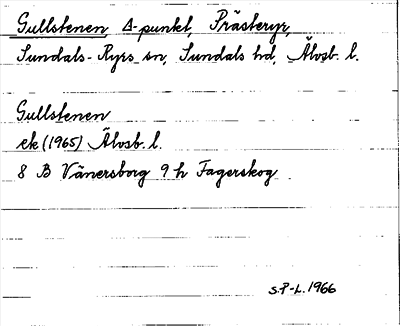 Gullstenen Δ-punkt, Prästeryr,
Sundals-Ryrs sn, Sundals hd, Älvsb. l.
Gullstenen
ek (1965) Älvsb. l.
8 B Vänersborg 9 h Fagerskog
S.P-L. 1966